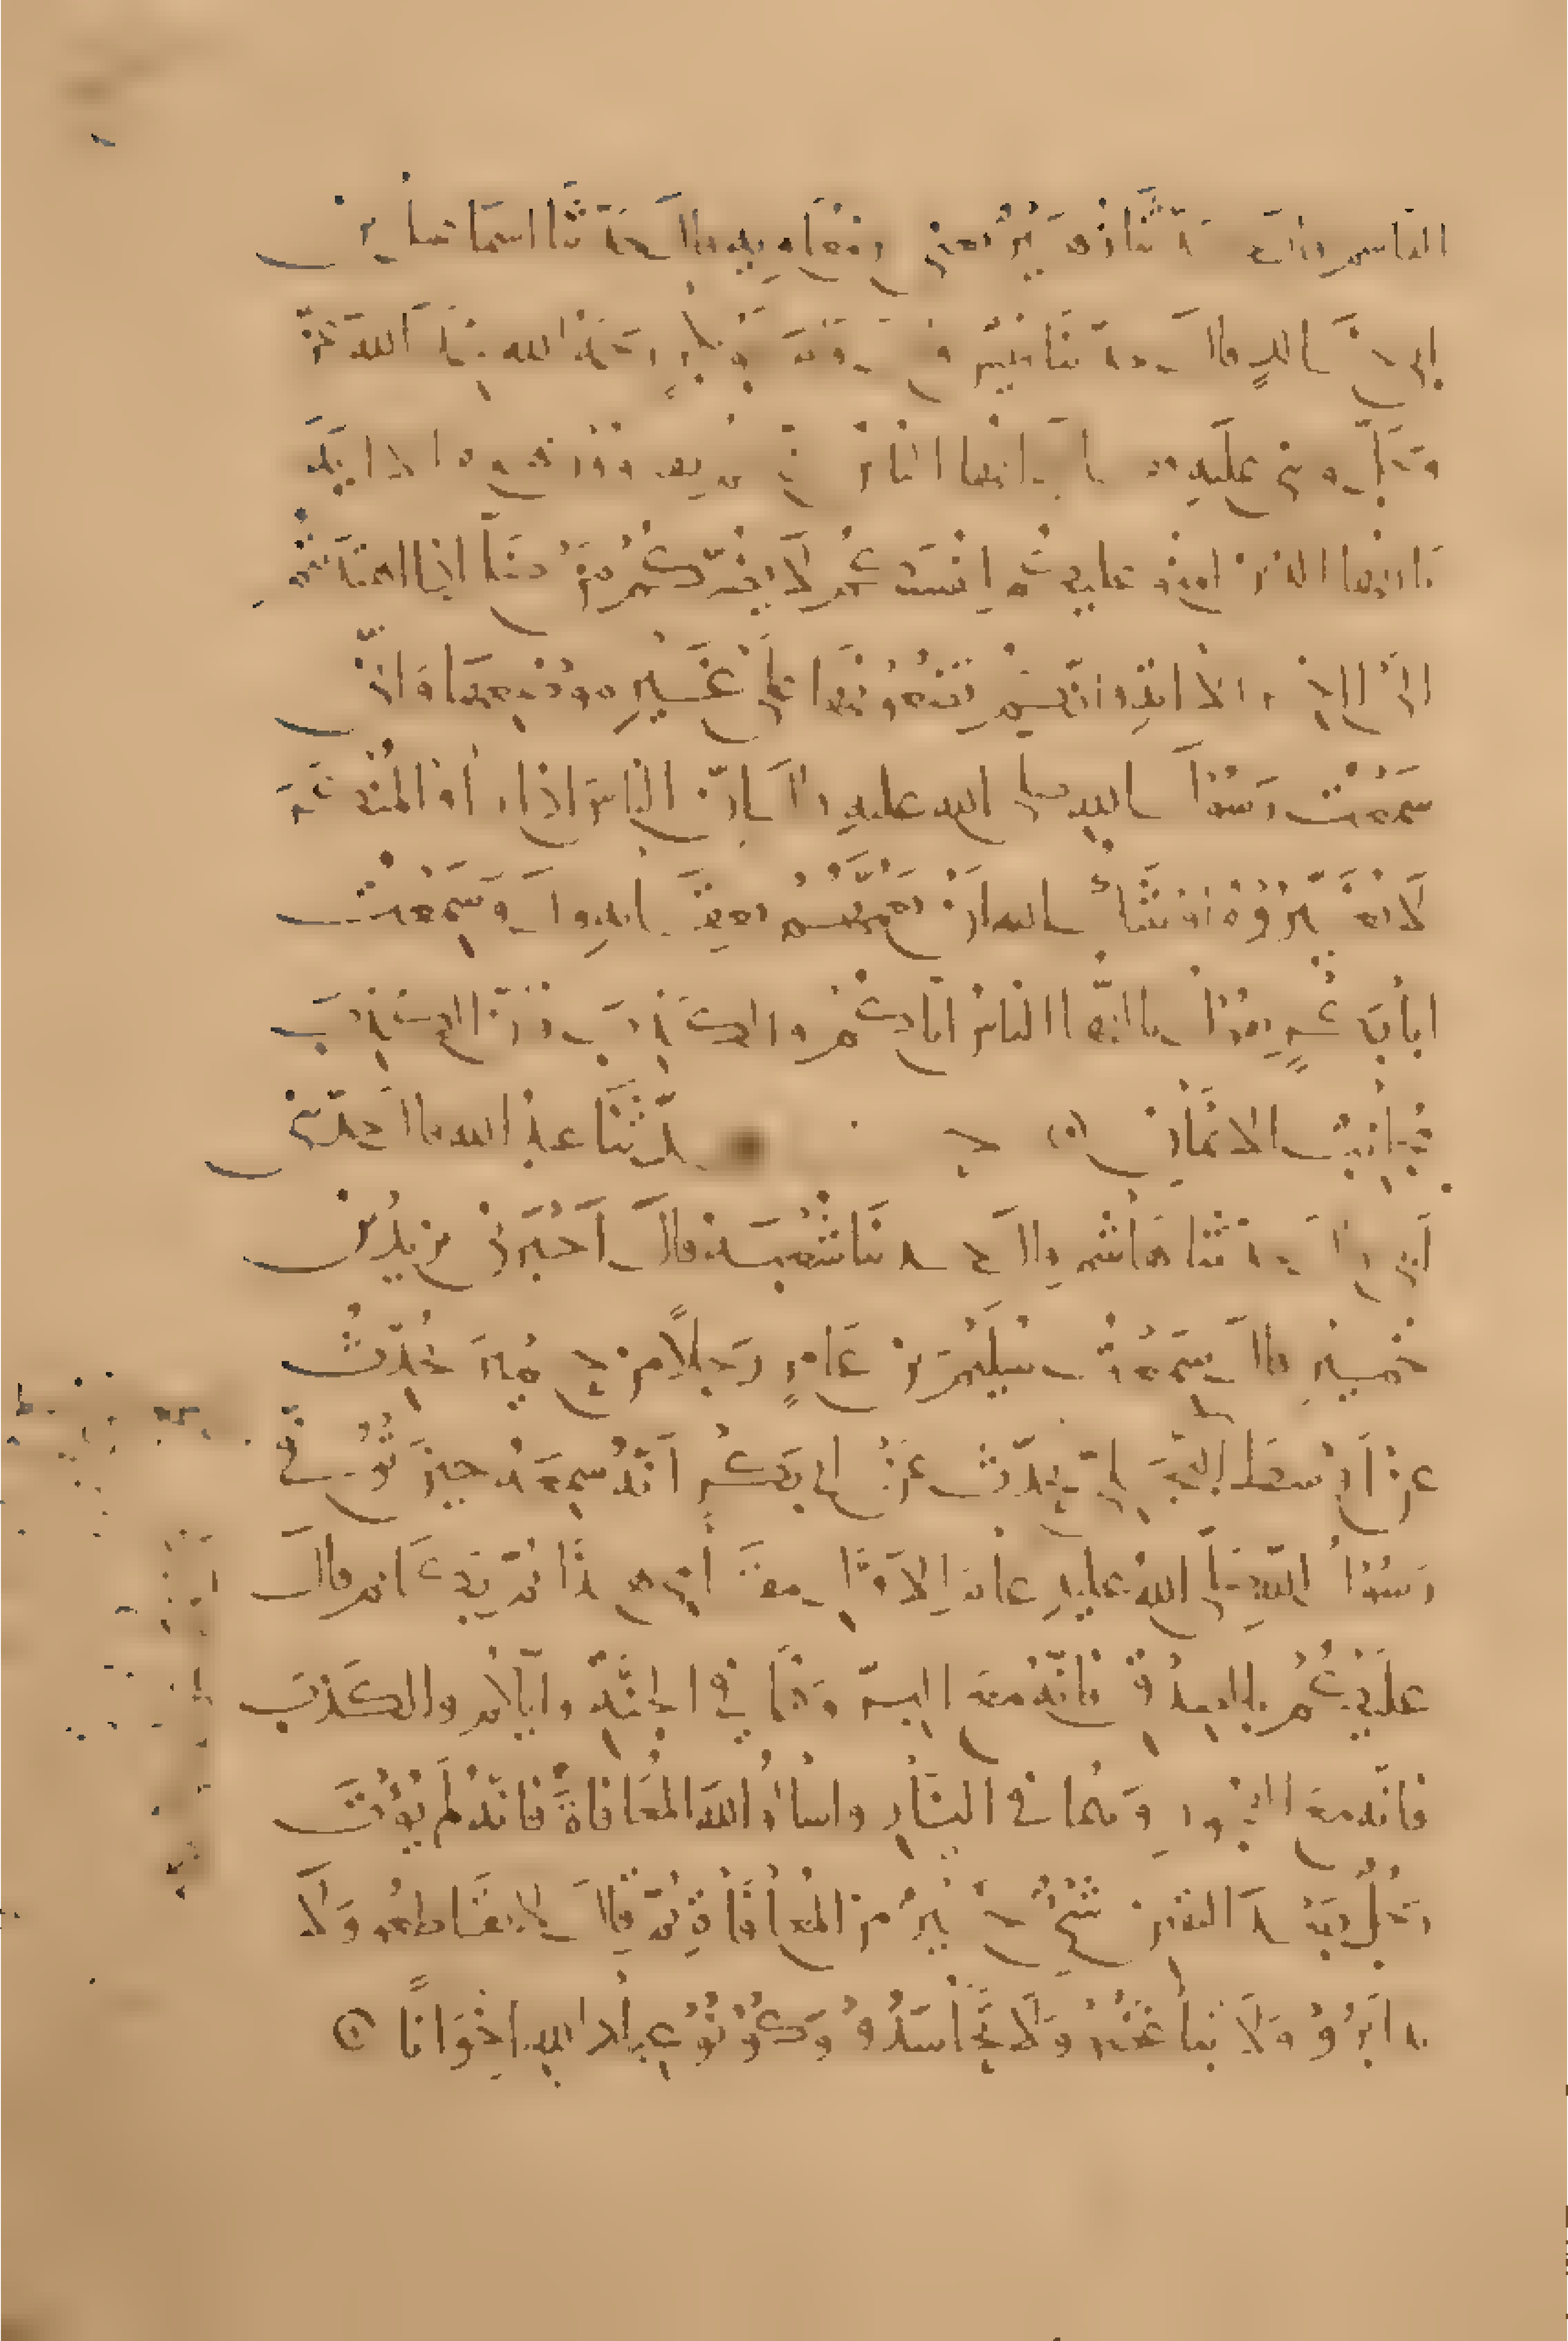 القاسم قال حدثنا زهير يعني ابن معاوية قال حدثنا اسماعيل بن
ابي خالد قال حدثنا قيس قال قام ابو بكر رحمه الله فحمد الله عز
وجل واثنى عليه فقال يا ايها الناس انكم تقرؤون هذه الاية
يا ايها الذين امنوا عليكم انفسكم لا يضركم من ضل اذا اهتديتم
الى اخر الاية وانكم تضعونها على غير موضعها واني
سمعت رسول الله صلى الله عليه يقول ان الناس اذا راوا المنكر
لا يغيروه اوشك الله ان يعمهم بعقابه قال وسمعت
ابا بكر يقول يا ايها الناس اياكم والكذب فان الكذب
مجانب الايمان حدثنا عبد الله قال حدثني
ابي قال حدثنا هاشم قال حدثنا شعبة قال اخبرني يزيد بن
خمير قال سمعت سليم بن عامر رجلا من حمير يحدث
عن اوسط البجلي يحدث عن ابي بكر انه سمعه حين توفي
رسول الله صلى الله عليه قام الاول مقامي هذا ثم بكى ثم قال
عليكم بالصدق فانه مع البر وهما في الجنة واياكم والكذب
فانه مع الفجور وهما في النار واسألوا الله المعافاة فانه لم يؤت
رجل بعد اليقين شيئ خير من المعافاة ثم قال لا تقاطعوا ولا
تدابروا ولا تباغضوا ولا تحاسدوا وكونوا عباد الله اخوانا